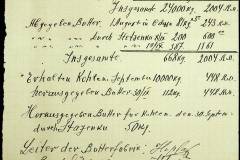 Insgesamt 24000 kg. 2004 Л.п.
Abgegeben Butter. 1 August
" " durch Stetsenko 200 600
" " 387. 1161
Insgesamt 668 kg 2004 Л.п.
Erhalten Kohlen. September 10000 kg 448 Л.п.
herausgegeben Butter 30/IX 112 kg. 448 Л.п.
Herausgegeben Butter für Kohlen. den 30. Septem.
durch Stazenko 50 kg.
Leiter der Butterfabrik: